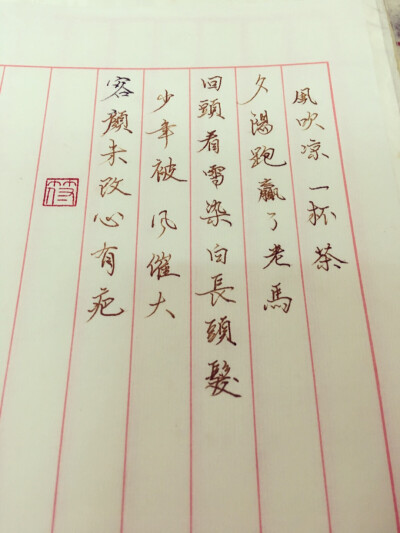 風吹凉一杯茶
夕陽跑贏了老馬
回頭看雪染白長頭髮
少年被风催大
容顏未改心有疤
符